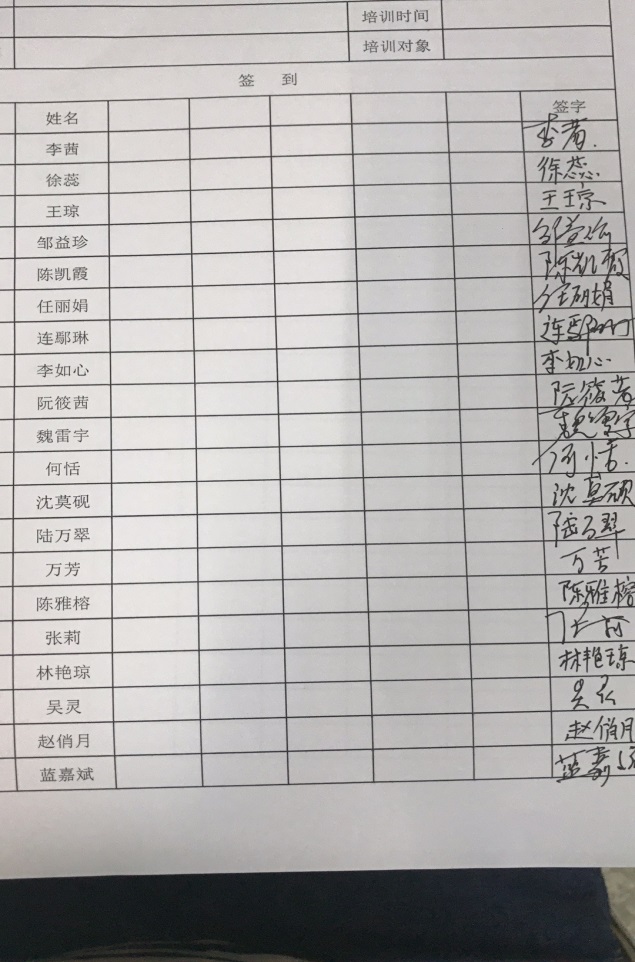 培训时间
培训对象
签 到
姓名 签字
李茜 李茜.
徐蕊 徐蕊
王琼 王琼
邹益珍 邹益珍
陈凯霞 陈凯霞
任丽娟 任丽娟
连鄢琳 连鄢琳
李如心 李如心
阮筱茜 阮筱茜
魏雷宇 魏雷宇
何恬 何恬.
沈莫砚 沈莫砚
陆万翠 陆万翠
万芳 万芳
陈雅榕 陈雅榕
张莉 张莉
林艳琼 林艳琼
吴灵 吴灵
赵俏月 赵俏月
蓝嘉斌 蓝嘉斌